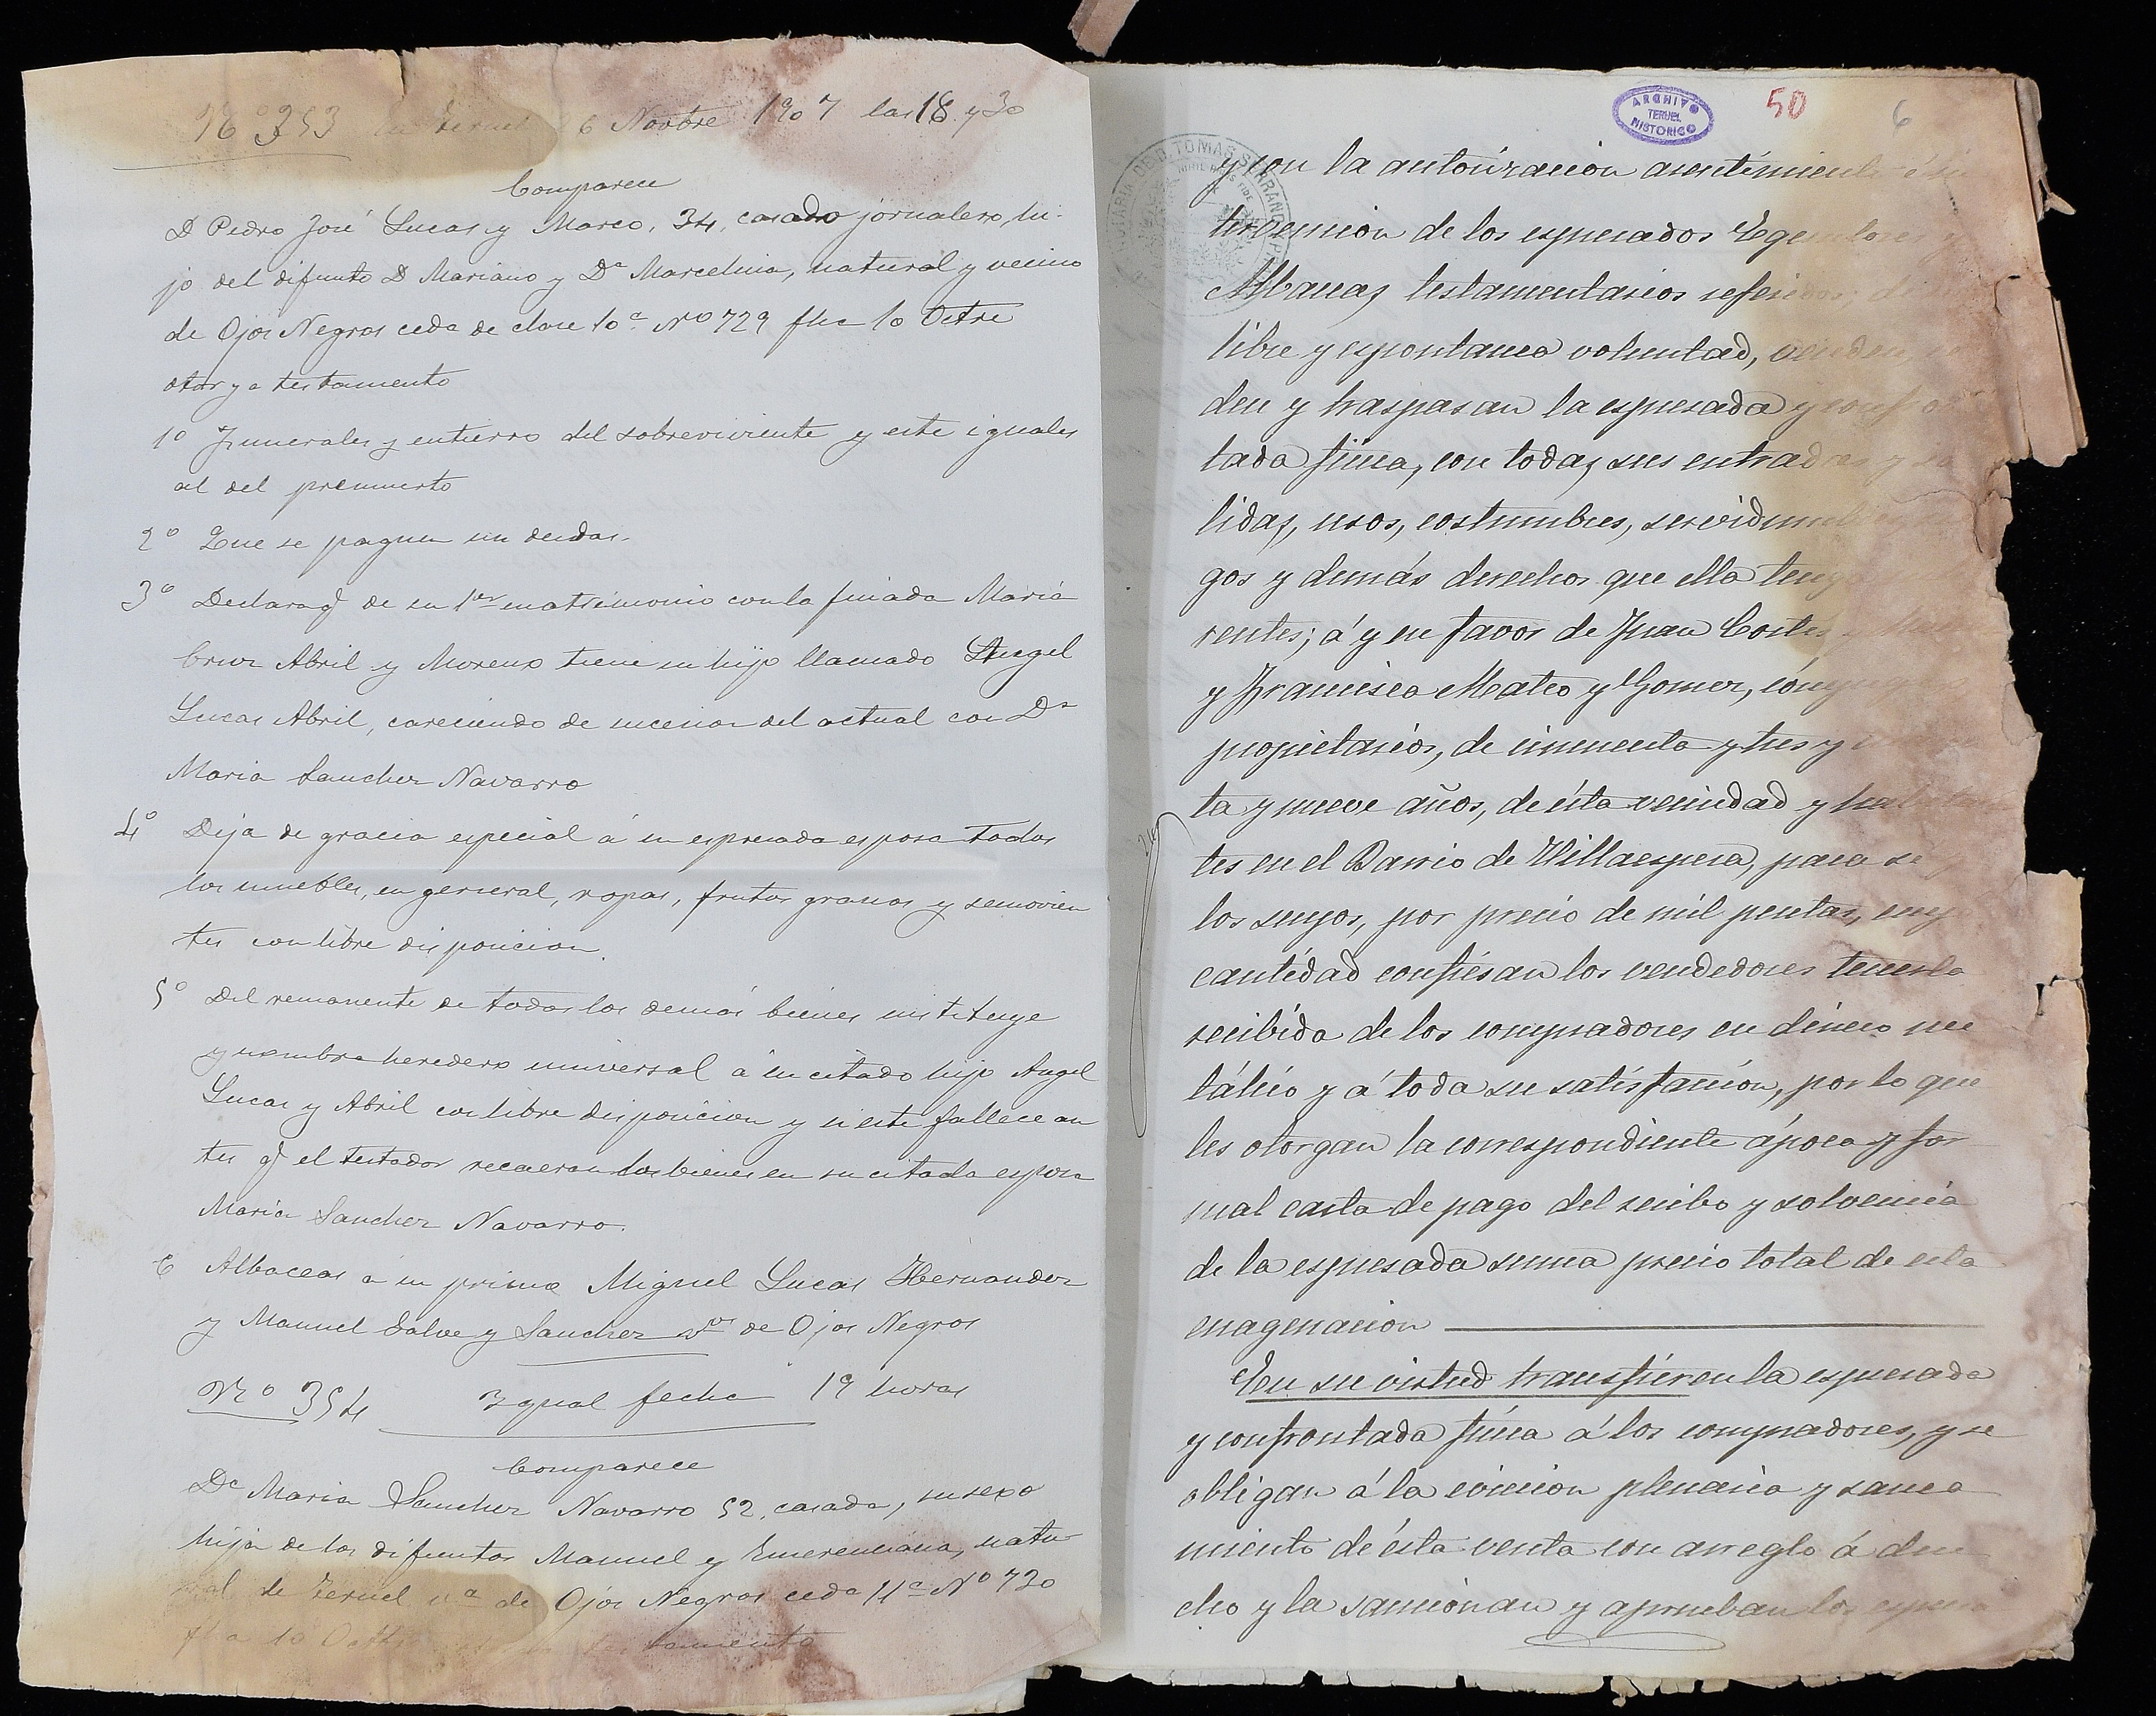 Nº 353 en Teruel 6 Novbre 1907 las 18 y 30
Comparece
D Pedro José Lucas y Marco, 34, casado jornalero, hi-
jo del difunto D Mariano y Dª Marcelina, natural y vecino
de Ojos Negros ceda de clase 10ª Nº 729 fha 10 Octre
otorga testamento
1º Funerales y entierro del sobreviviente y este iguales
al del premuerto
2º Que se paguen sus deudas.
3º Declara q de su 1er matrimonio con la finada Maria
Cruz Abril y Moreno tiene un hijo llamado Angel
Lucas Abril, careciendo de sucesion del actual con Dª
Maria Sanchez Navarro
4º Deja de gracia especial á su espresada esposa todos
los muebles, en general, ropas, frutos granos y semovien
tes con libre disposicion.
5º Del remanente de todos los demás bienes instituye
y nombra heredero universal á su citado hijo Angel
Lucas y Abril con libre disposicion y si este fallece an
tes q el testador recaeran los bienes en su citada esposa
Maria Sanchez Navarro.
6 Albaceas a su primo Miguel Lucas Hernandez
y Manuel Salve y Sanchez vos de Ojos Negros
Nº 354 Igual fecha 19 horas
Comparece
Dª Maria Sanchez Navarro 52, casada, su sexo
hija de los difuntos Manuel y Emerenciana, natu-
ral de Teruel vª de Ojos Negros ceda 11ª Nº 730
fha 10 Octbre testamento
ARCHIVO
TERUEL
HISTORICO
50
6
NOTARIA DE D. TOMAS SERRANO
NIHIL PRIUS FIDE
y con la autorizacion asentimiento é in
tervencion de los espresados Egecutores y
Albaceas testamentarios referidos; de
libre y espontanea voluntad, venden, ce
den y traspasan la espresada y confron
tada finca, con todas sus entradas y sa
lidas, usos, costumbres, servidumbres
gos y demás derechos que ella teng
rentes; á y en favor de Juan Cortés y
y Francisca Mateo y Gomez, cónyuges
propietarios, de cincuenta y tres y
ta y nueve años, de ésta vecindad y habitan
tes en el Barrio de Villaespesa, para sí y
los suyos, por precio de mil pesetas, cuya
cantidad confiesan los vendedores tenerla
recibida de los compradores en dinero me
tálico y á toda su satisfacción, por lo que
les otorgan la correspondiente ápoca y for
mal carta de pago del recibo y solvencia
de la espresada suma precio total de esta
enagenacion
En su virtud transfieren la espresada
y confrontada finca á los compradores, y se
obligan á la evicción plenaria y sanea
miento de ésta venta con arreglo á dere
cho y la sancionan y aprueban los espresa